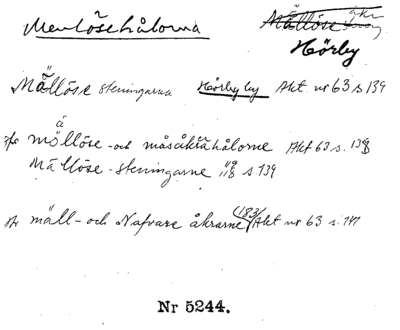 Menlösehålorna
Mällöse
Hörby
Mällöse steningarna Hörby by Akt nr 63 s 139
mällöse - och måsåkrahålorne Akt 63 s. 138
Mällöse - steningarne 118 s. 139
mäll - och Nafvare åkrarne (183) Akt nr 63 s. 141
Nr 5244.